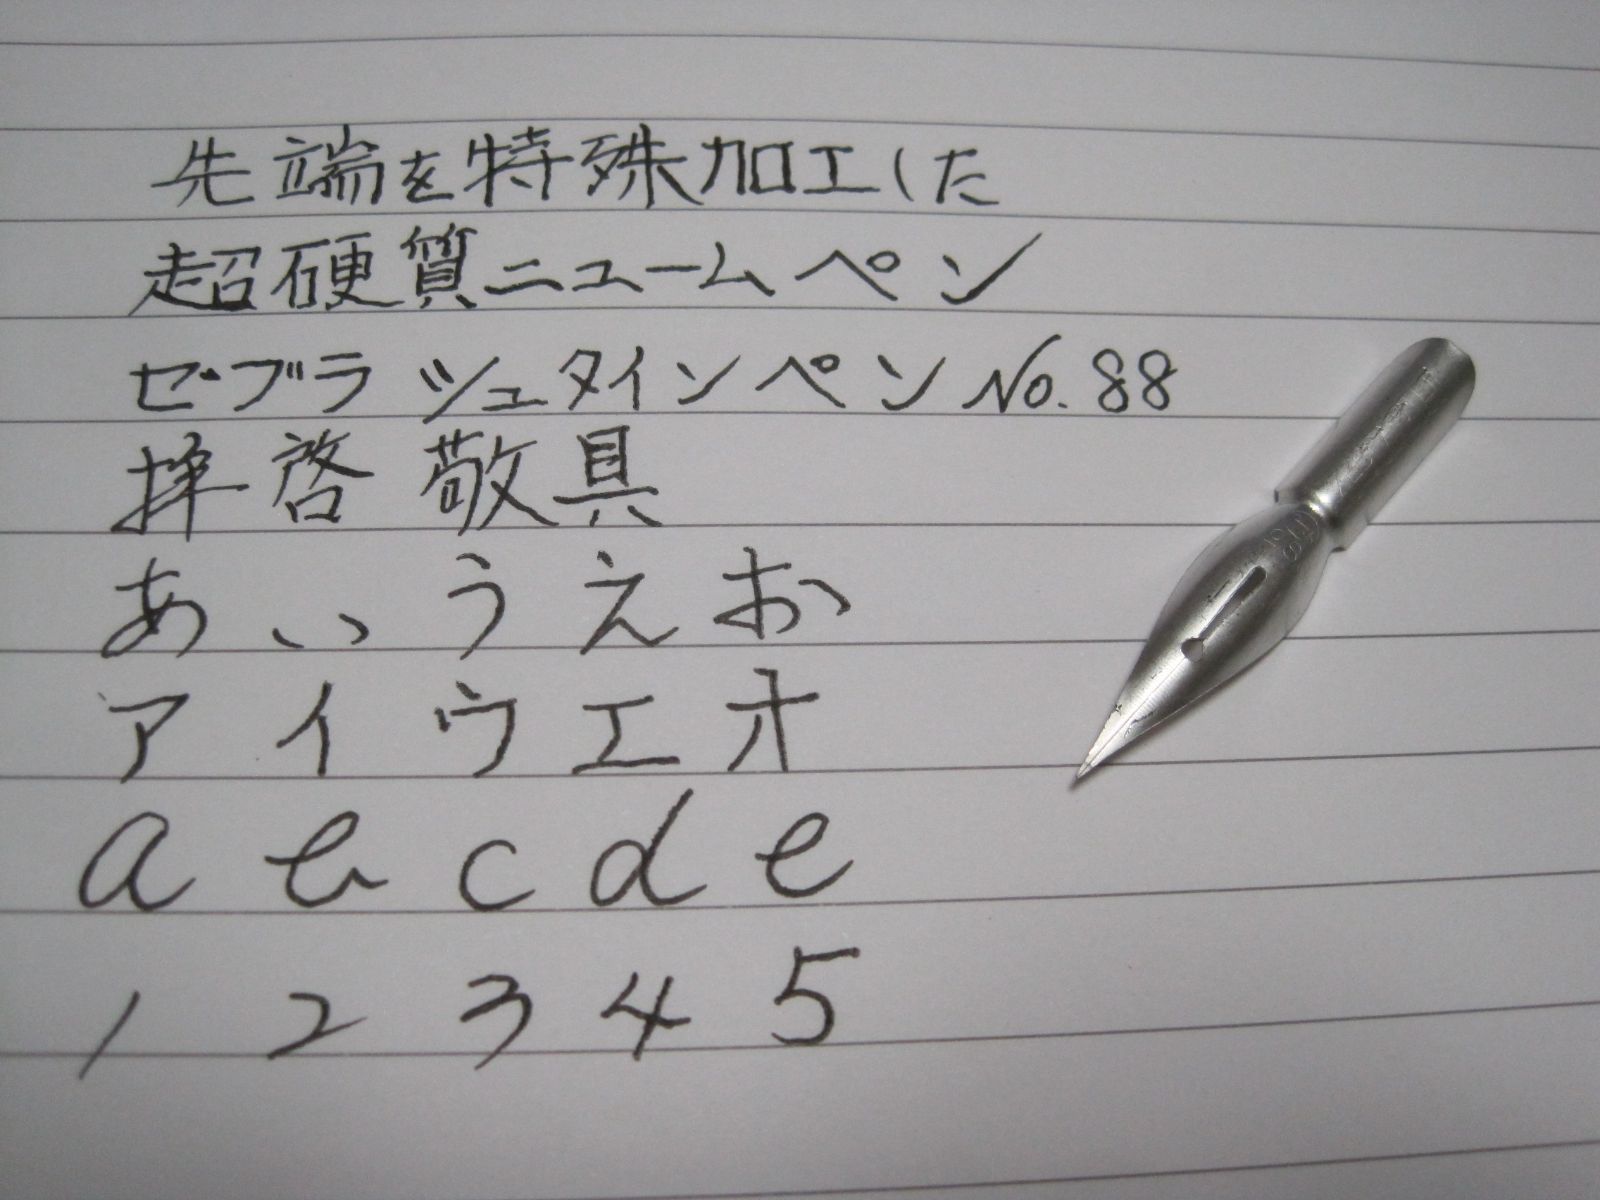 先端を特殊加工した
超硬質ニュームペン
ゼブラ ツュタインペン No.88
拝啓 敬具
あいうえお
アイウエオ
a b c d e
1 2 3 4 5